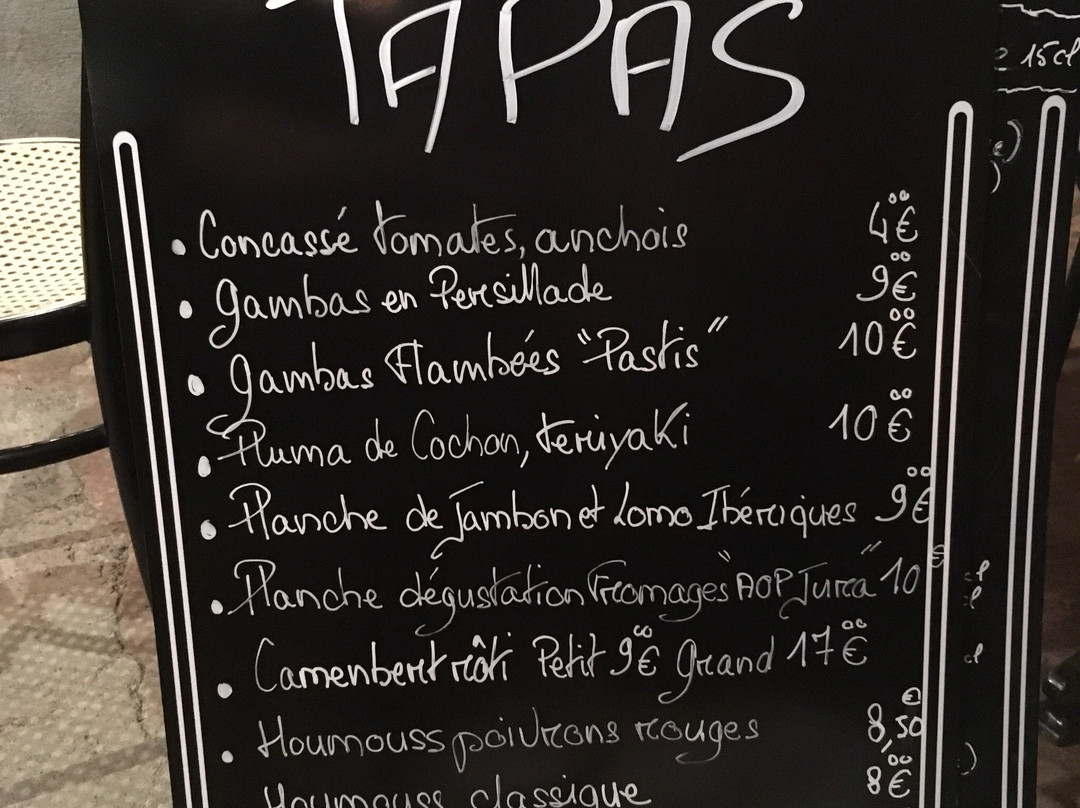 TAPAS
• Concassé tomates, anchois 4€00
• gambas en Persillade 9€00
• gambas Flambées "Pastis" 10€00
• Pluma de Cochon, teriyaki 10€00
• Planche de Jambon et Lomo Ibériques 9€00
• Planche dégustation Fromages "AOP Jura" 10€
• Camenbert rôti Petit 9€00 grand 17€00
• Houmouss poivrons rouges 8,50€
Houmouss classique 8€00
15cl
cl
cl
cl